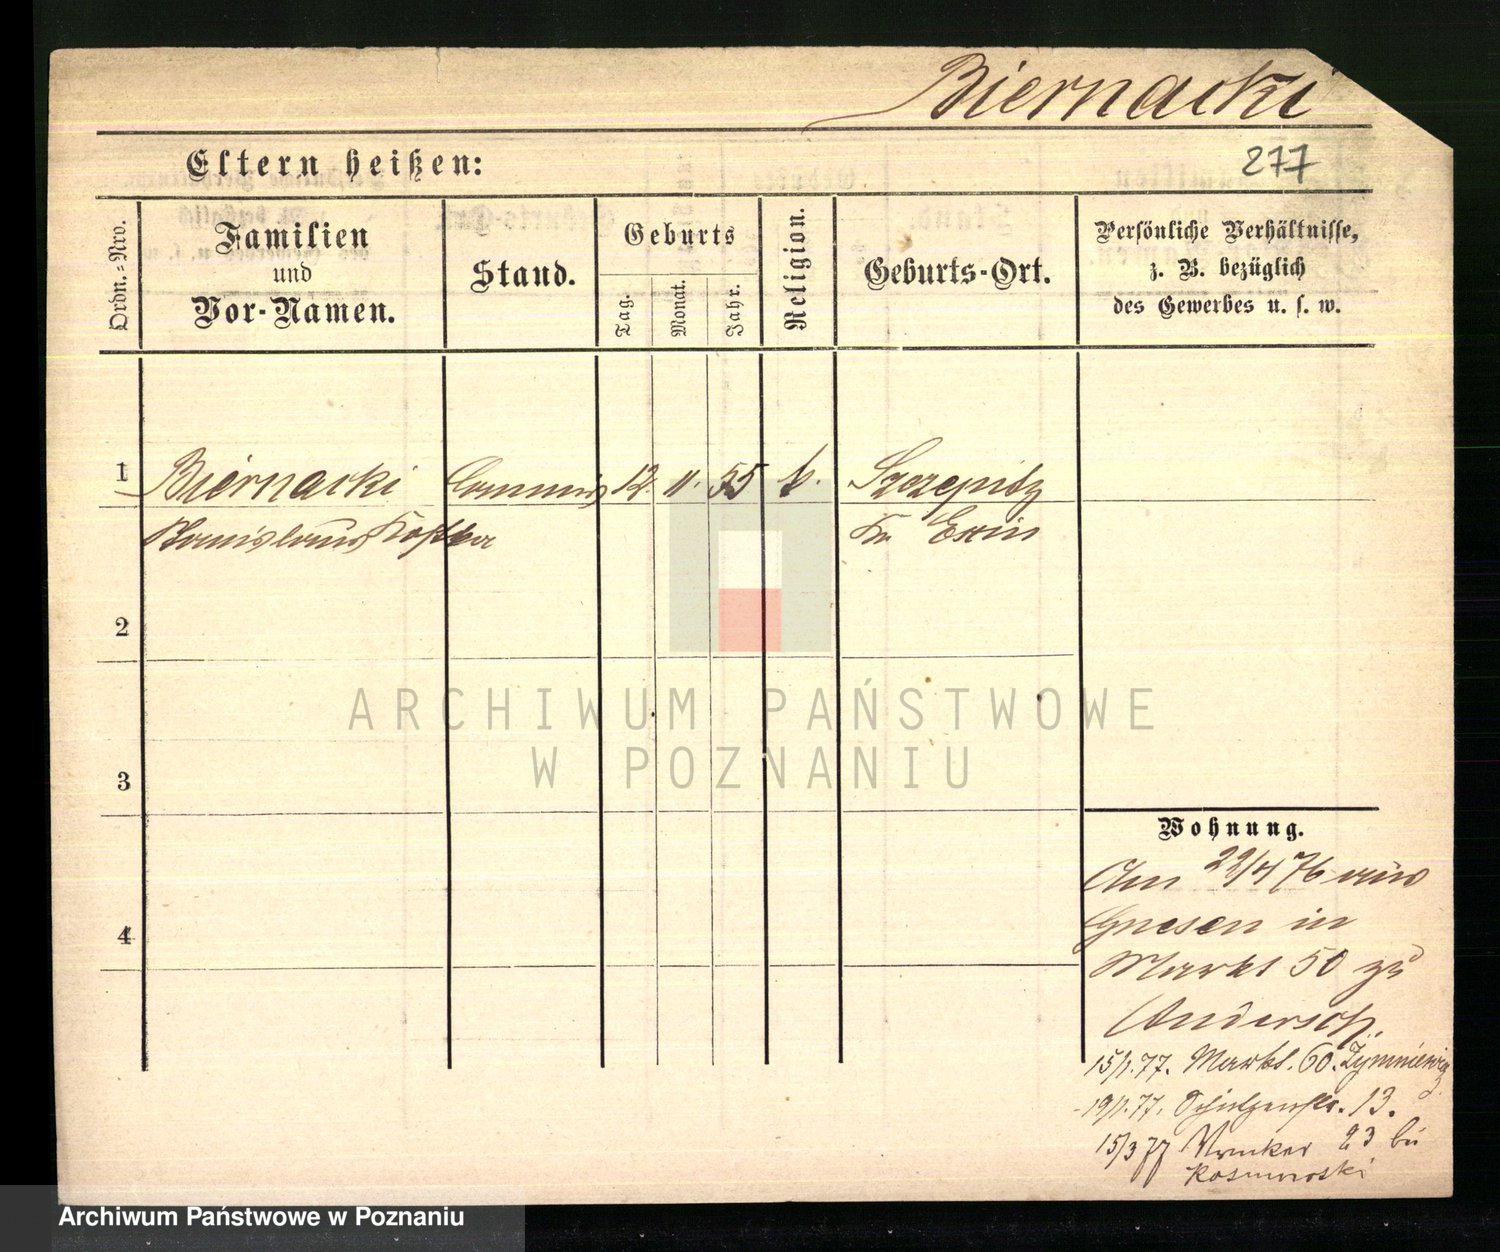 Biernacki
Eltern heißen:
277
Ordn.=Nro.
Familien
und
Vor-Namen.
Stand.
Geburts
Tag.
Monat.
Jahr.
Religion.
Geburts-Ort.
Persönliche Verhältnisse,
z. B. bezüglich
des Gewerbes u. s. w.
1
Biernacki Commis 12. 11. 55 k. Szczepitz
Stanislaus Kostka Kr. Exin
2
3
4
ARCHIWUM PAŃSTWOWE
W POZNANIU
Wohnung.
Am 22/4 76 aus
Gnesen in
Markt 50 zu
Andersch.
15/1.77. Markt. 60.
19/1.77. Schützenstr. 13.
15/3 77 23 bei
Archiwum Państwowe w Poznaniu